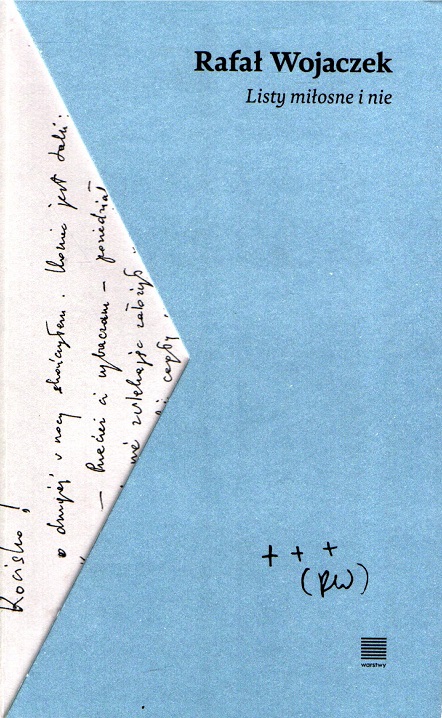 Rafał Wojaczek
Listy miłosne i nie
Kocisko!
o drugiej w nocy skończyłem. Koniec jest taki:
— Przecież ci wybaczam — powiedział
nie zwlekając założył
+ + +
(RW)
warstwy